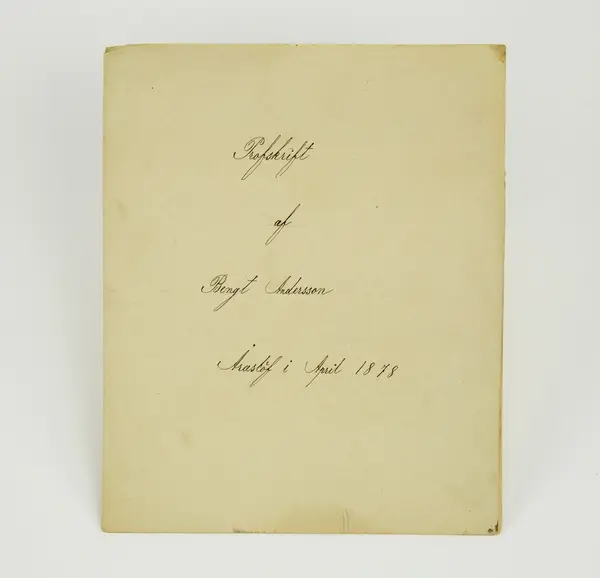 Profskrift
af
Bengt Andersson
Åraslöf i April 1878